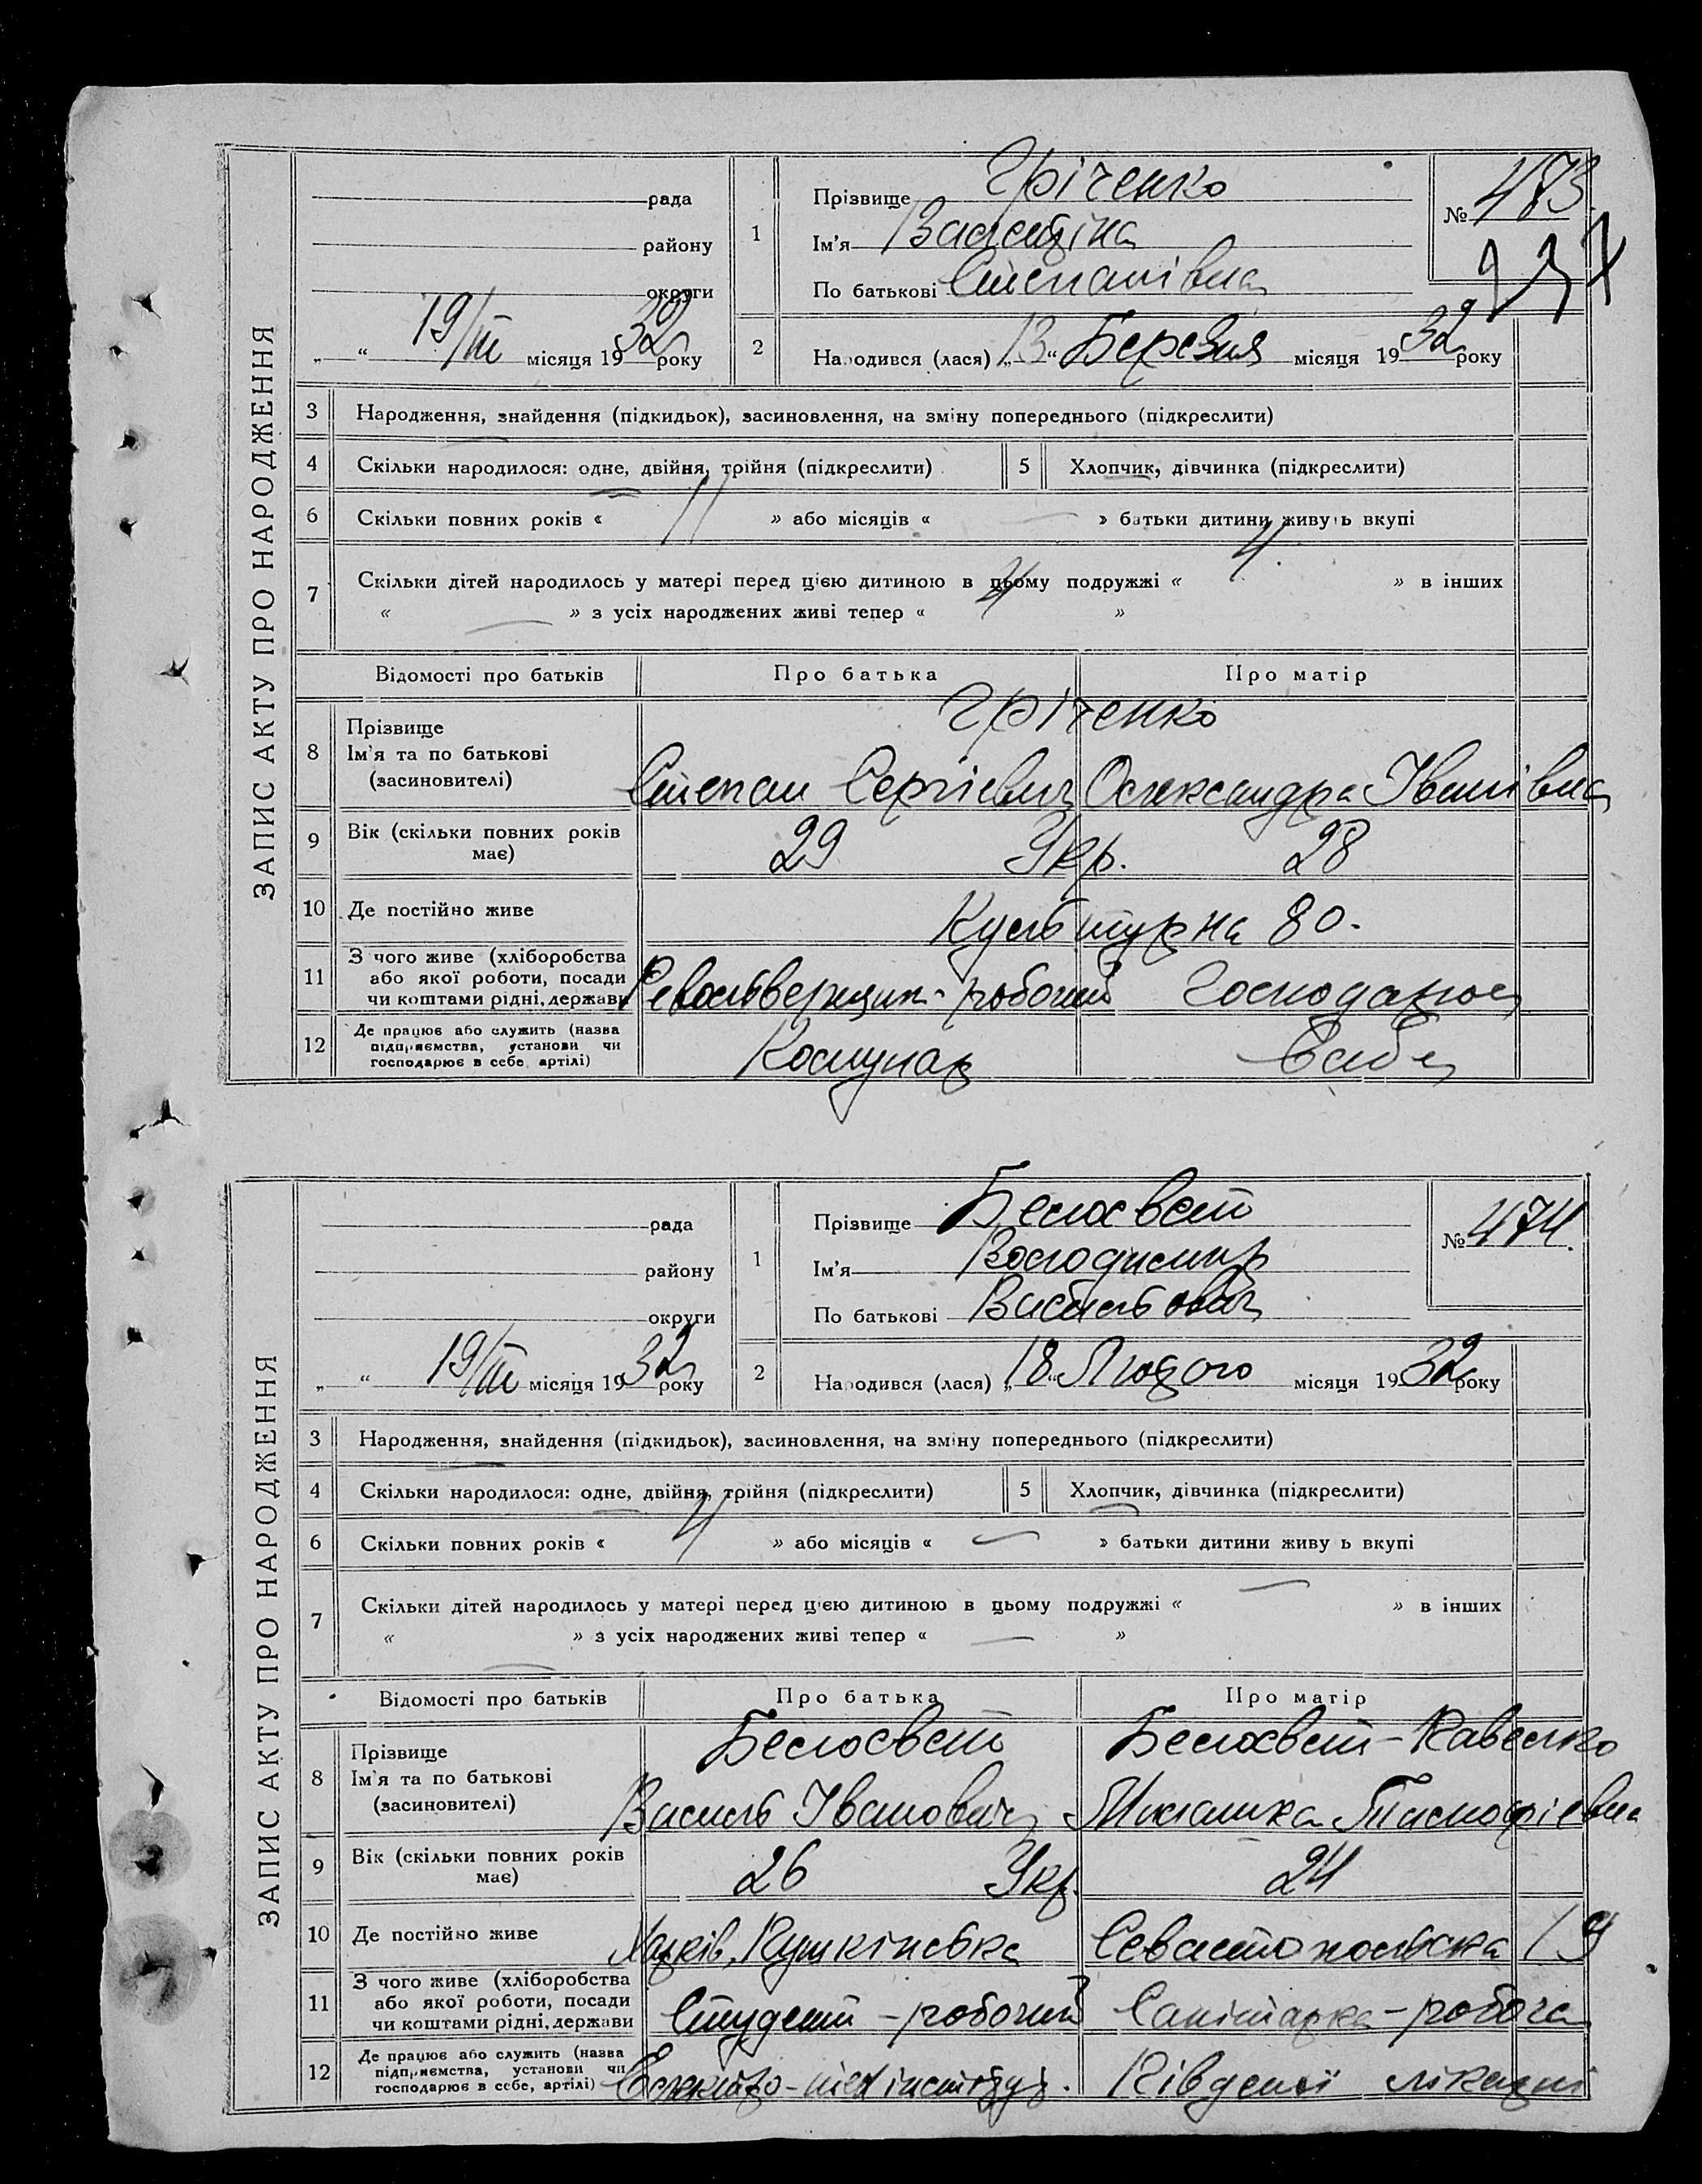 ЗАПИС АКТУ ПРО НАРОДЖЕННЯ
рада
району
округи
„ “ 19/III місяця 1932 року
1
Прізвище Гріченко
Ім'я Валентіна
По батькові Степанівна
№ 473.
237
2 Народився (лася) „13“ Березня місяця 1932 року
3 Народження, знайдення (підкидьок), засиновлення, на зміну попереднього (підкреслити)
4 Скільки народилося: одне, двійня, трійня (підкреслити)
5 Хлопчик, дівчинка (підкреслити)
6 Скільки повних років « 11 » або місяців « — » батьки дитини живуть вкупі
7 Скільки дітей народилось у матері перед цією дитиною в цьому подружжі « 4 » в інших
« — » з усіх народжених живі тепер « 4 »
Відомості про батьків Про батька Про матір
8 Прізвище
Ім'я та по батькові
(засиновителі)
Гріченко
Степан Сергієвич Олександра Іванівна
9 Вік (скільки повних років має) 29 Укр. 28
10 Де постійно живе Культурна 80.
11 З чого живе (хліборобства
або якої роботи, посади
чи коштами рідні, держави
Револьверщик-робочий Господарює
12 Де працює або служить (назва
підприємства, установи чи
господарює в себе, артілі)
Комунар в себе
ЗАПИС АКТУ ПРО НАРОДЖЕННЯ
рада
району
округи
„ “ 19/III місяця 1932 року
1
Прізвище Белосвет
Ім'я Володимир
По батькові Васильович
№ 474.
2 Народився (лася) „18“ Лютого місяця 1932 року
3 Народження, знайдення (підкидьок), засиновлення, на зміну попереднього (підкреслити)
4 Скільки народилося: одне, двійня, трійня (підкреслити)
5 Хлопчик, дівчинка (підкреслити)
6 Скільки повних років « 4 » або місяців « — » батьки дитини живу ь вкупі
7 Скільки дітей народилось у матері перед цією дитиною в цьому подружжі « — » в інших
« — » з усіх народжених живі тепер « — »
Відомості про батьків Про батька Про матір
8 Прізвище
Ім'я та по батькові
(засиновителі)
Белосвет Белосвет-Кавелко
Василь Іванович
9 Вік (скільки повних років має) 26 Укр. 24
10 Де постійно живе Харків, Пушкінська Севастопольська
11 З чого живе (хліборобства
або якої роботи, посади
чи коштами рідні, держави
Студент-робочий Санітарка-робоча
12 Де працює або служить (назва
підприємства, установи чи
господарює в себе, артілі)
Південої лікарні